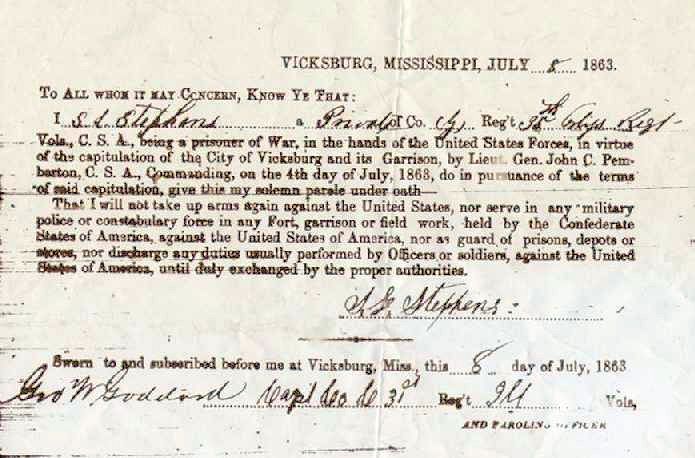 VICKSBURG, MISSISSIPPI, JULY 8 1863.
TO ALL WHOM IT MAY CONCERN, KNOW YE THAT:
I S L Stephens a Private of Co. G, Reg't Regt
Vols., C. S. A., being a prisoner of War, in the hands of the United States Forces, in virtue
of the capitulation of the City of Vicksburg and its Garrison, by Lieut. Gen. John C. Pem-
barton, C. S. A., Commanding, on the 4th day of July, 1863, do in pursuance of the terms
of said capitulation, give this my solemn parole under oath—
That I will not take up arms again against the United States, nor serve in any military
police or constabulary force in any Fort, garrison or field work, held by the Confederate
States of America, against the United States of America, nor as guard of prisons, depots or
stores, nor discharge any duties usually performed by Officers or soldiers, against the United
States of America, until duly exchanged by the proper authorities.
S. L. Stephens
Sworn to and subscribed before me at Vicksburg, Miss., this 8 day of July, 1863
Geo W Goddard Capt Co C 31st Reg't Ill Vols,
AND PAROLING OFFICER